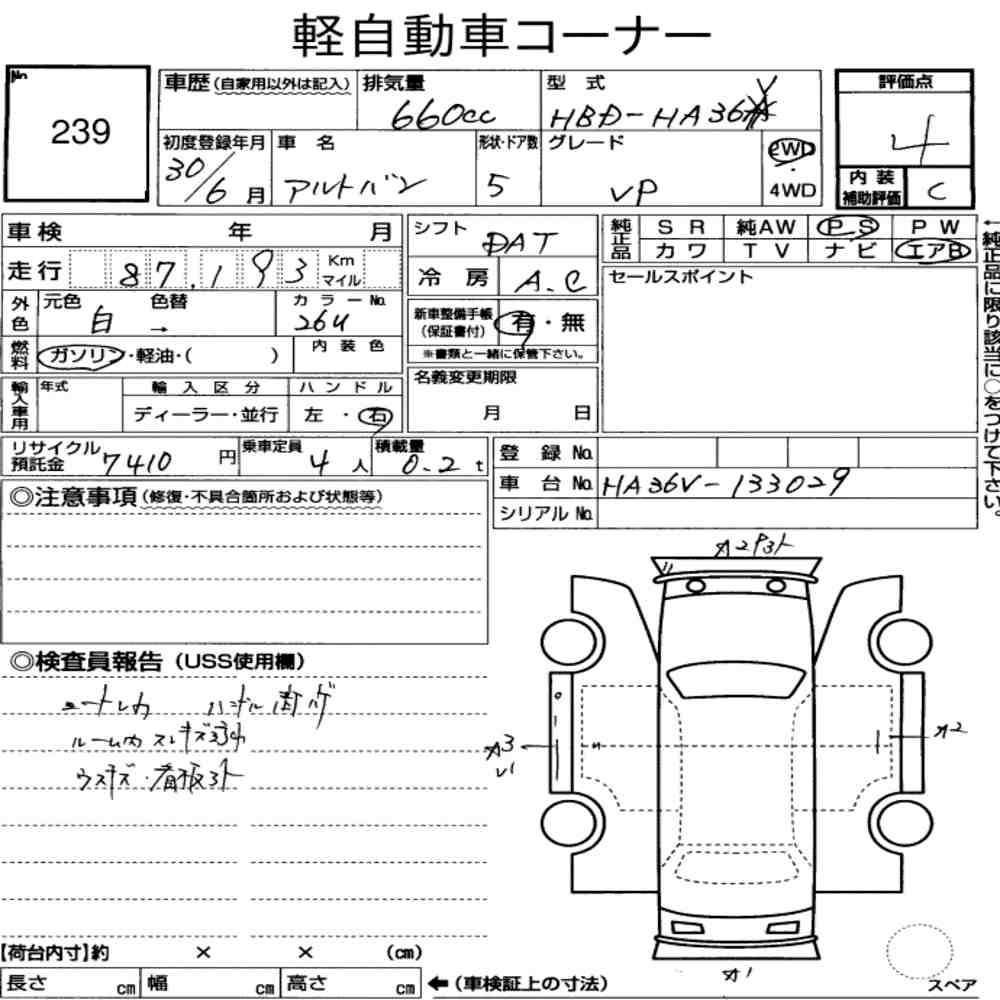 軽自動車コーナー
No. 239
車歴(自家用以外は記入) 排気量 660cc 型式 HBD-HA36V 評価点 4
初度登録年月 30/6月 車名 アルトバン 形状・ドア数 5 グレード VP 2WD・4WD
内装補助評価 C
車検 年 月 シフト DAT
純正品 SR 純AW PS PW
カワ TV ナビ エアB
走行 87,193 Km マイル 冷房 A.C
セールスポイント
外色 元色 白 色替 → カラーNo. 26U
新車整備手帳(保証書付) 有・無
※書類と一緒に保管下さい。
燃料 ガソリン・軽油・( ) 内装色
名義変更期限 月 日
輸入車用 年式 輸入区分 ディーラー・並行 ハンドル 左・右
←純正品に限り該当に○をつけて下さい。
リサイクル預託金 7410円 乗車定員 4人 積載量 0.2t
登録No.
車台No. HA36V-133029
シリアルNo.
◎注意事項(修復・不具合箇所および状態等)
◎検査員報告(USS使用欄)
ルーム内スレキズ
ウスキズ・看板
A3
A2
A1
【荷台内寸】約 × × (cm)
長さ cm 幅 cm 高さ cm ←(車検証上の寸法)
スペア